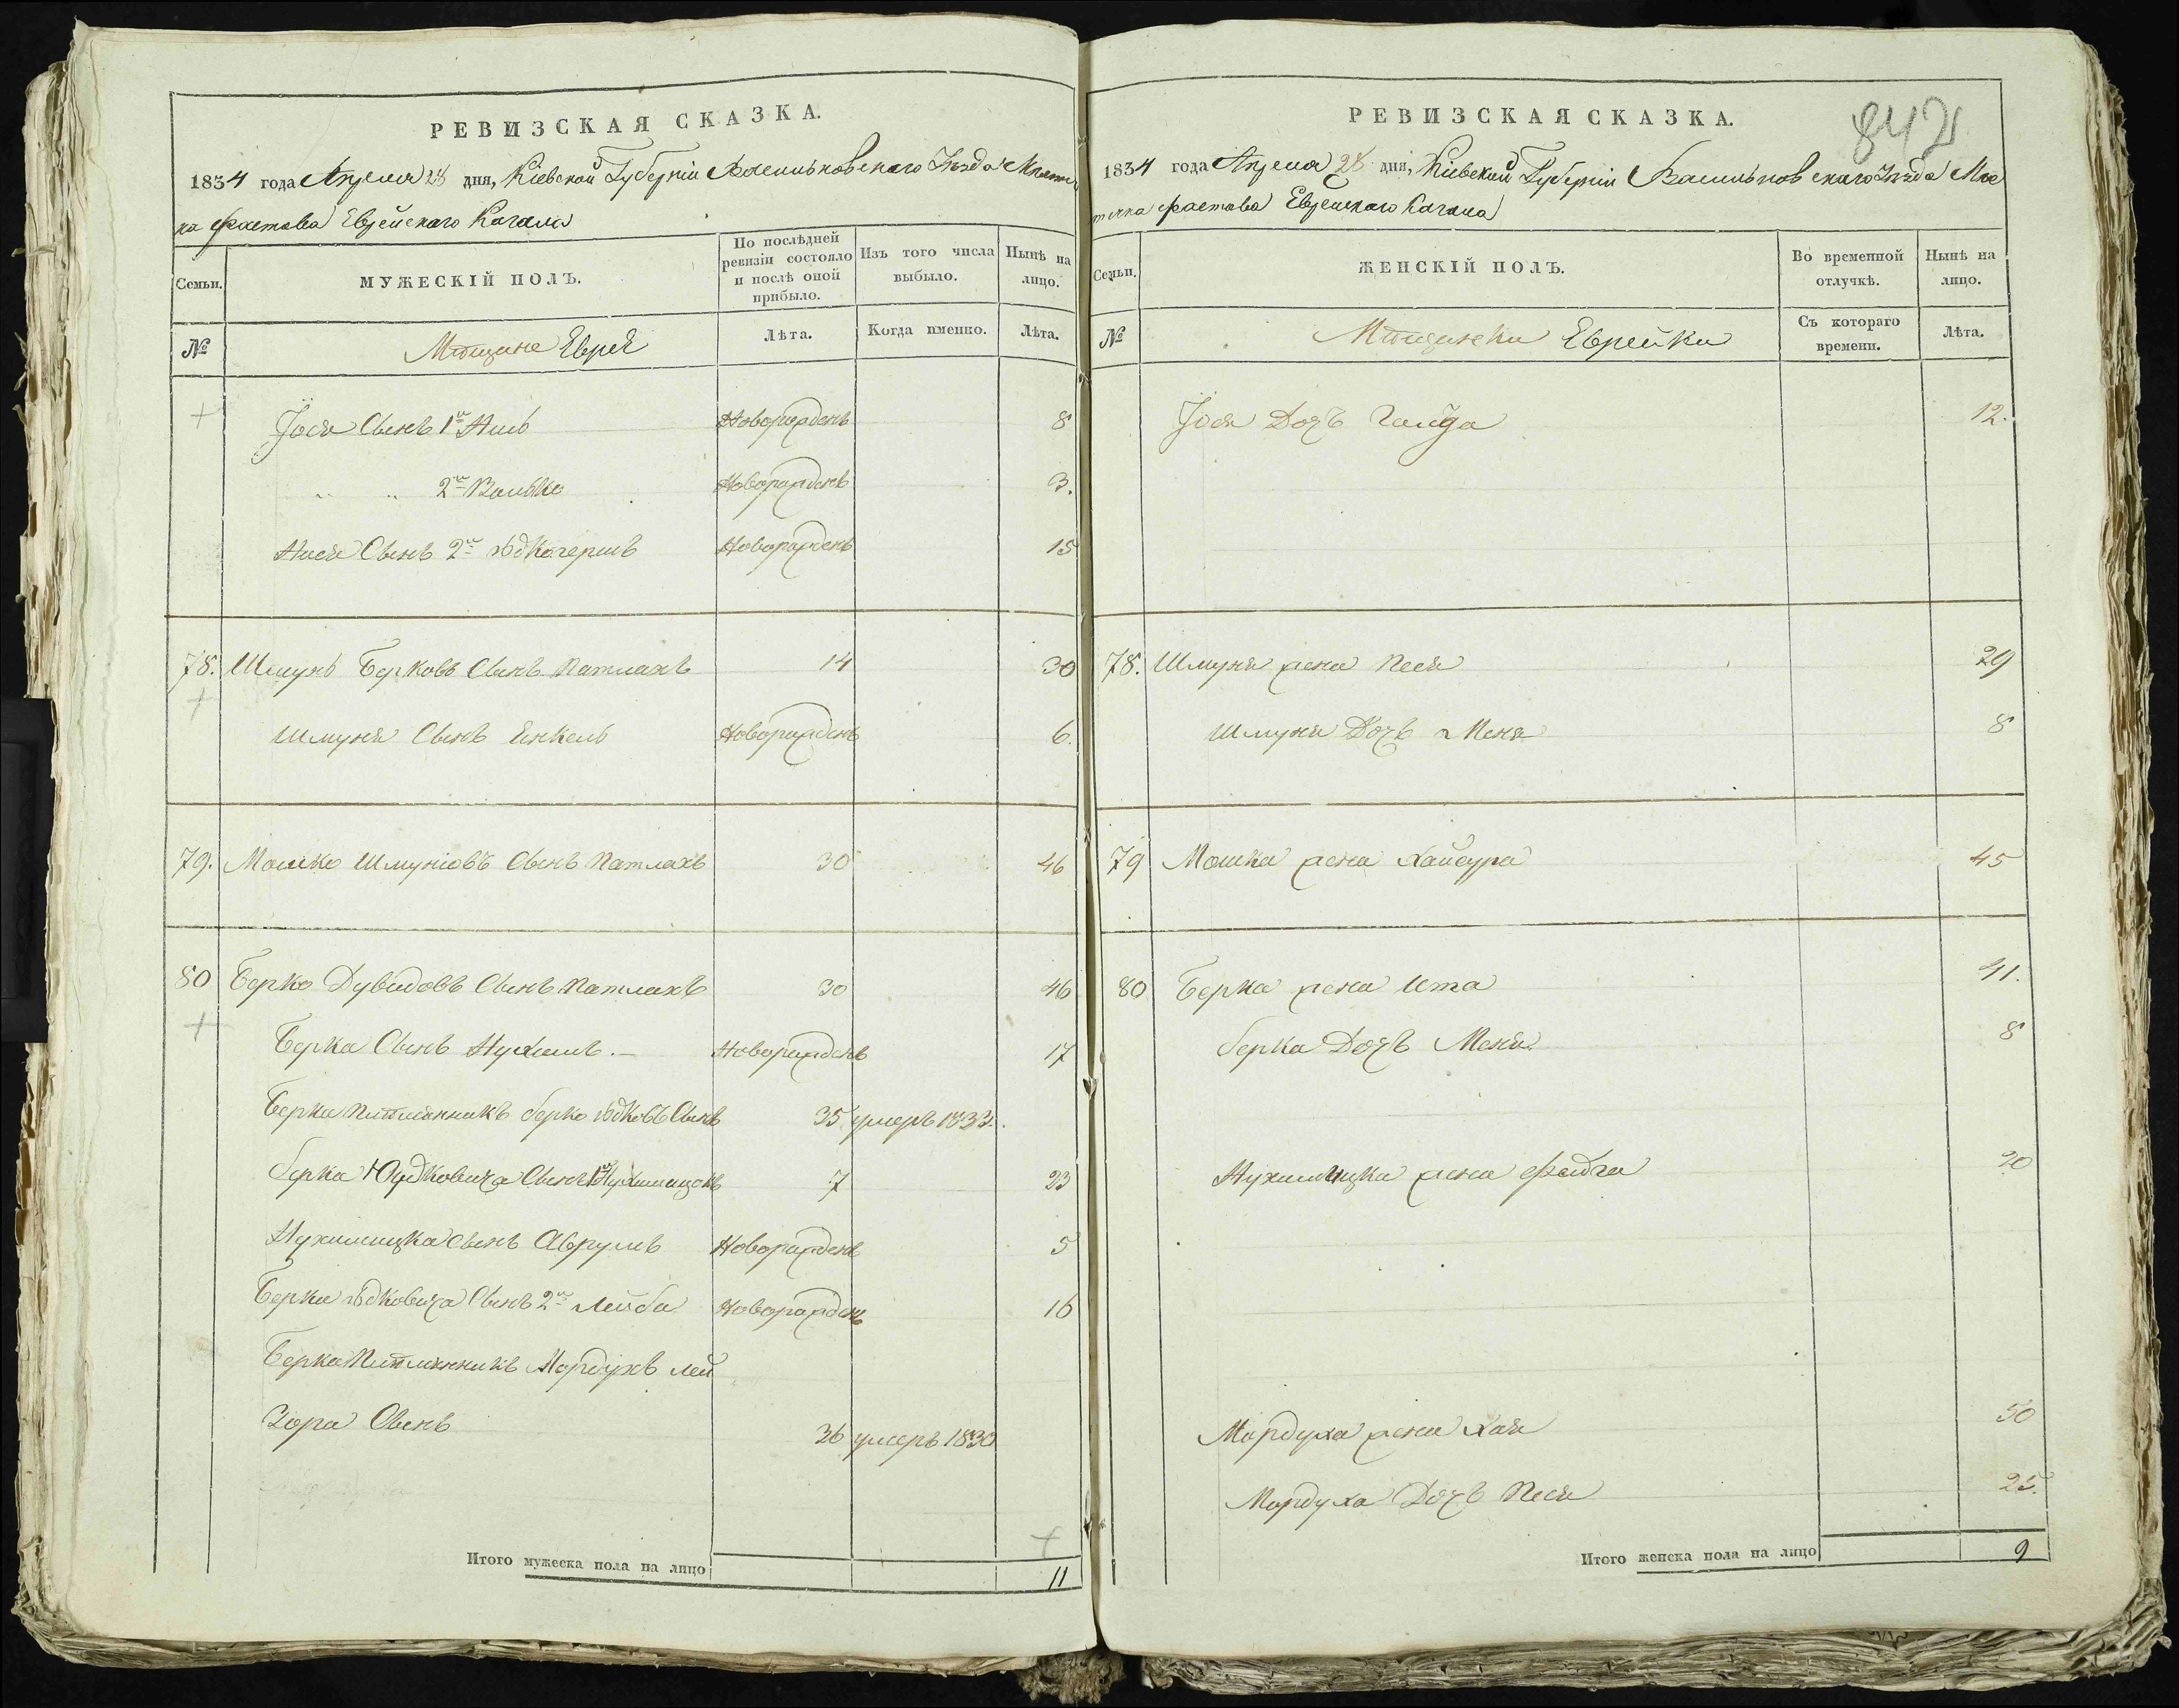 РЕВИЗСКАЯ СКАЗКА.
1834 года Апреля 28 дня, Кіевской Губерніи Васильковскаго Уезда Местеч
ка Фастова Еврейскаго Кагала
Семьи.
МУЖЕСКІЙ ПОЛЪ.
По послѣдней ревизіи состояло и послѣ оной прибыло.
Изъ того числа выбыло.
Нынѣ на лицо.
№
Мѣщане Евреи
Лѣта.
Когда именно.
Лѣта.
Іося Сынъ 1й Новорожденъ 8
" " 2й Волько Новорожденъ 3.
Сынъ 2й Новорожденъ 15
78. Шмунь Берковъ Сынъ Патлахъ 14 30
Шмуня Сынъ Енкель Новорожденъ 6.
79. Мошко Шмуніовъ Сынъ Патлахъ 30 46
80 Берко Дувидовъ Сынъ Патлахъ 30 46
Берка Сынъ Нухимъ. Новорожденъ 17
Берка Племянникъ Берко Юдковъ Сынъ 35 умеръ 1833.
Берка Юдковича Сынъ 1й Нухимицокъ 7 23
Нухимицка Сынъ Аврумъ Новорожденъ 5
Берка Юдковича Сынъ 2й Лейба Новорожденъ 16
Берка Племянникъ Мордухъ Лей
зора Сынъ 36 умеръ 1830
Итого мужеска пола на лицо 11
РЕВИЗСКАЯ СКАЗКА.
842
1834 года Апреля 28 дня, Кіевской Губерніи Васильковскаго Уезда Мес
течка Фастова Еврейскаго Кагала
Семьи.
ЖЕНСКІЙ ПОЛЪ.
Во временной отлучкѣ.
Нынѣ на лицо.
№
Мѣщанки Еврейки
Съ котораго времени.
Лѣта.
Іося Дочь 12.
78. Шмуня жена Песя 29
Шмуня Дочь Меня 8
79 Мошка жена Хайсура 45
80 Берка жена Ита 41.
Берка Дочь Меня 8
Нухимицка жена Фейга 20
Мордуха жена Хая 50
Мордуха Дочь Песя 25.
Итого женска пола на лицо 9